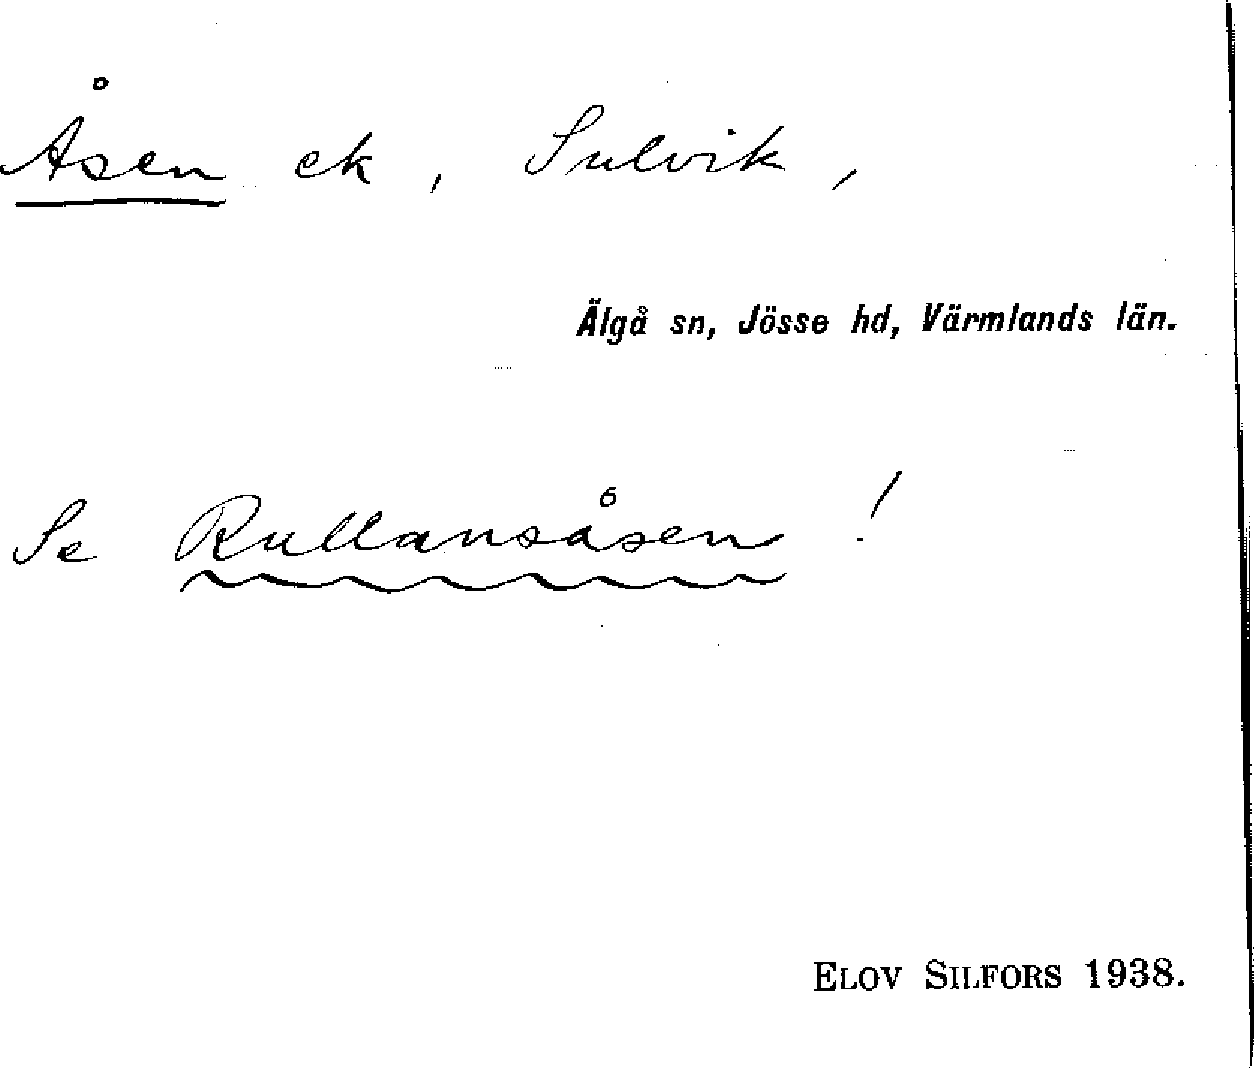 Åsen ek, Sulvik,
Älgå sn, Jösse hd, Värmlands län.
Se Rullansåsen!
ELOV SILFORS 1938.